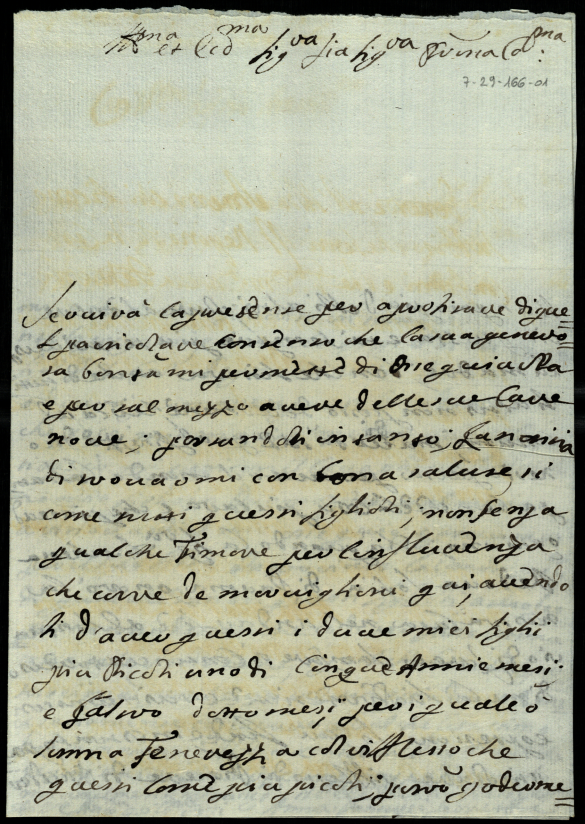 Ill:ma et Ecc:ma Sig:ra Sig:ra
7-29-166-01
Servirà la presense per aprofitare di que=
l particolare Consenso che la sua genero=
sa bontà mi permesse di
e per tal mezzo avere delle sue Care
nove; portandoli in tanto,
di trovarmi con bona salute si
come tutti questi figlioli; non senza
qualche Timore per l'influenza
che corre de morviglioni qui, avendo
li d'aver questi i due miei figli
più Picoli uno di Cinque Annie mesi
e l'altro d'otto mesi, per i quale ò
tutta Tenerezza col riflesso che
questi Come più picoli; però godiome=